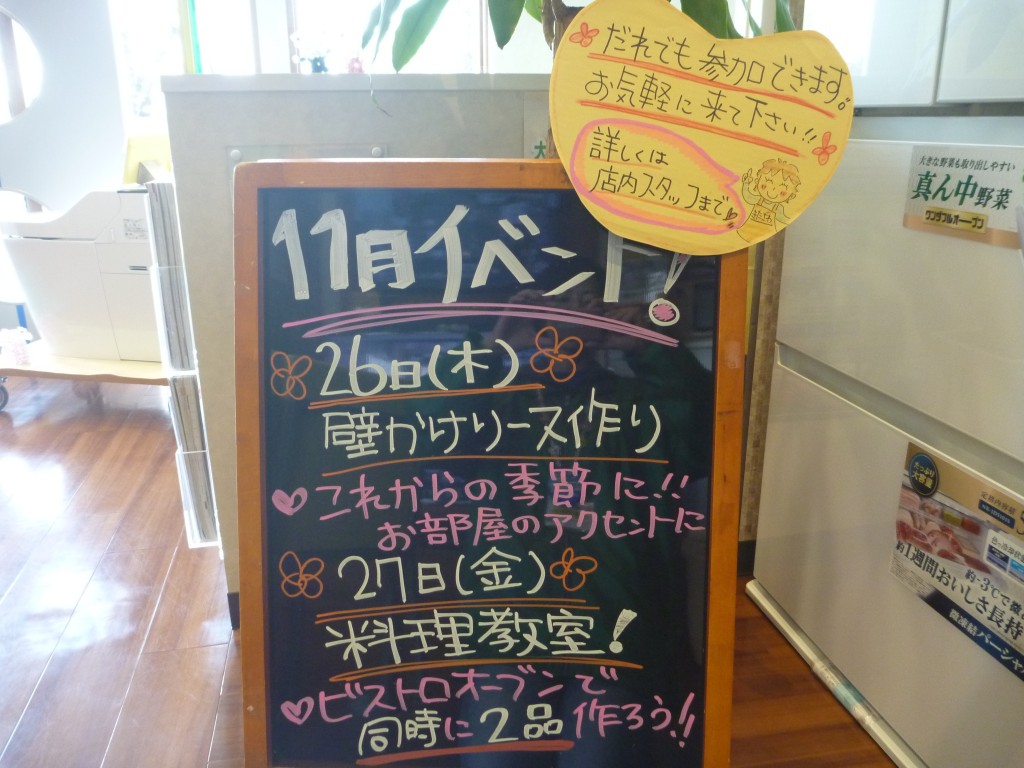 だれでも参加できます。
お気軽に来て下さい!!
詳しくは
店内スタッフまで
11月イベント!
26日(木)
壁かけリース作り
これからの季節に!!
お部屋のアクセントに
27日(金)
料理教室!
ビストロオーブンで
同時に2品作ろう!!
大きな野菜も取り出しやすい
真ん中野菜
ワンダフルオープン
たっぷり
約-3℃で微
約1週間おいしさ長持
微凍結パーシャ